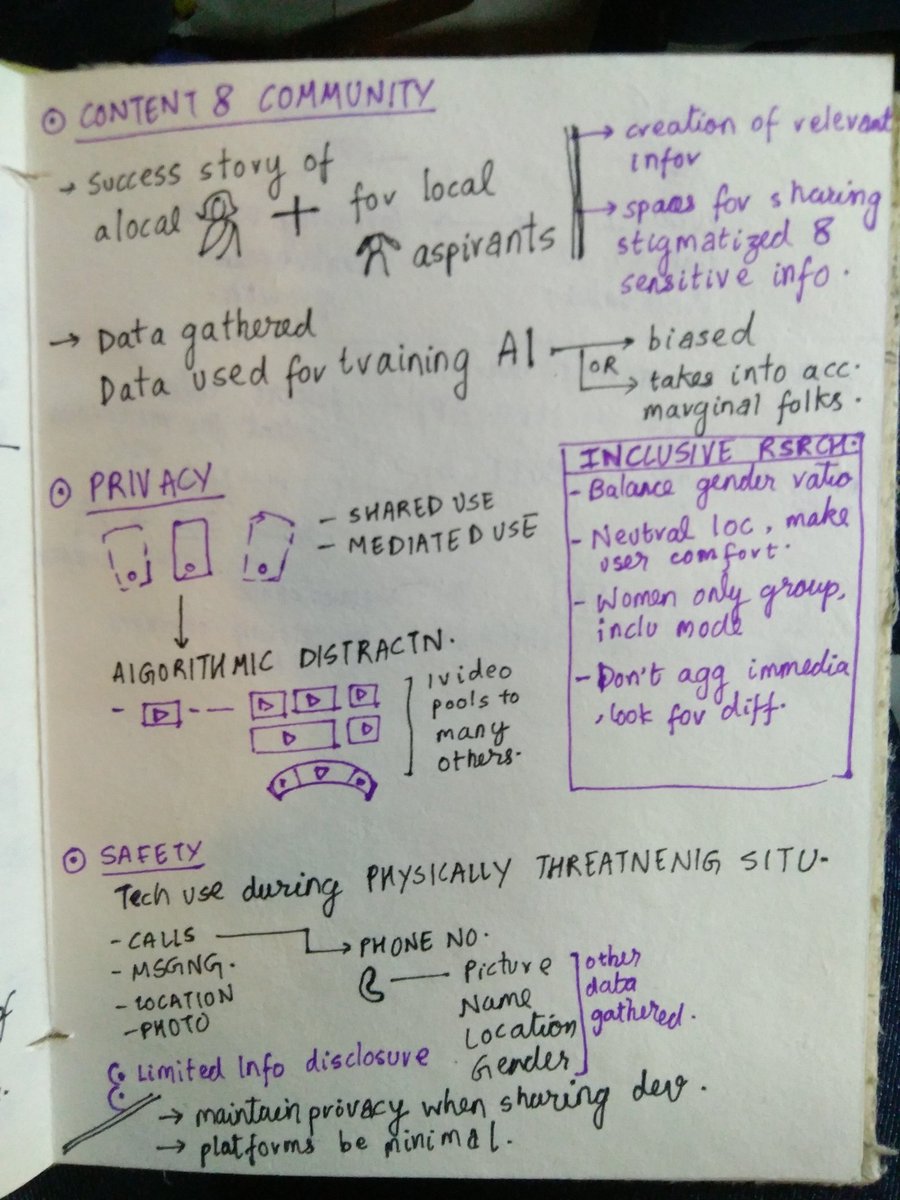 CONTENT & COMMUNITY
→ success story of
a local + for local
aspirants
→ creation of relevant
infor
→ spaces for sharing
stigmatized &
sensitive info.
→ Data gathered
Data used for training AI → biased
OR → takes into acc.
marginal folks.
PRIVACY
- SHARED USE
- MEDIATED USE
ALGORITHMIC DISTRACTN.
1 video
pools to
many
others.
INCLUSIVE RSRCH.
- Balance gender ratio
- Neutral loc, make
user comfort.
- Women only group,
inclu mode
- Don't agg immedia
, look for diff.
SAFETY
Tech use during PHYSICALLY THREATNENIG SITU-
- CALLS → PHONE NO.
- MSGNG.
- LOCATION
- PHOTO
Picture
Name
Location
Gender
other
data
gathered.
Limited Info disclosure
→ maintain privacy when sharing dev.
→ platforms be minimal.